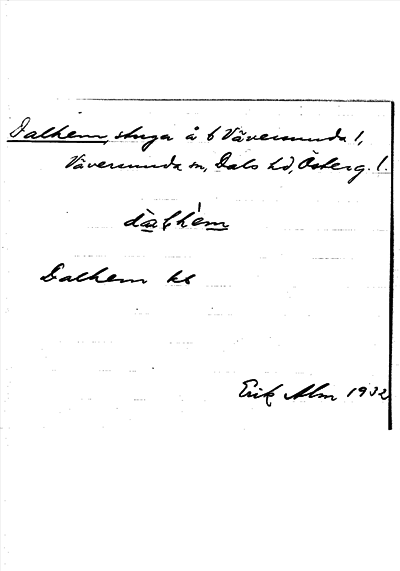 Dalhem, stuga å 6 Väversunda 1,
Väversunda sn, Dals hd, Österg. l.
dàlhem
Dalhem kb
Erik Alm 1932